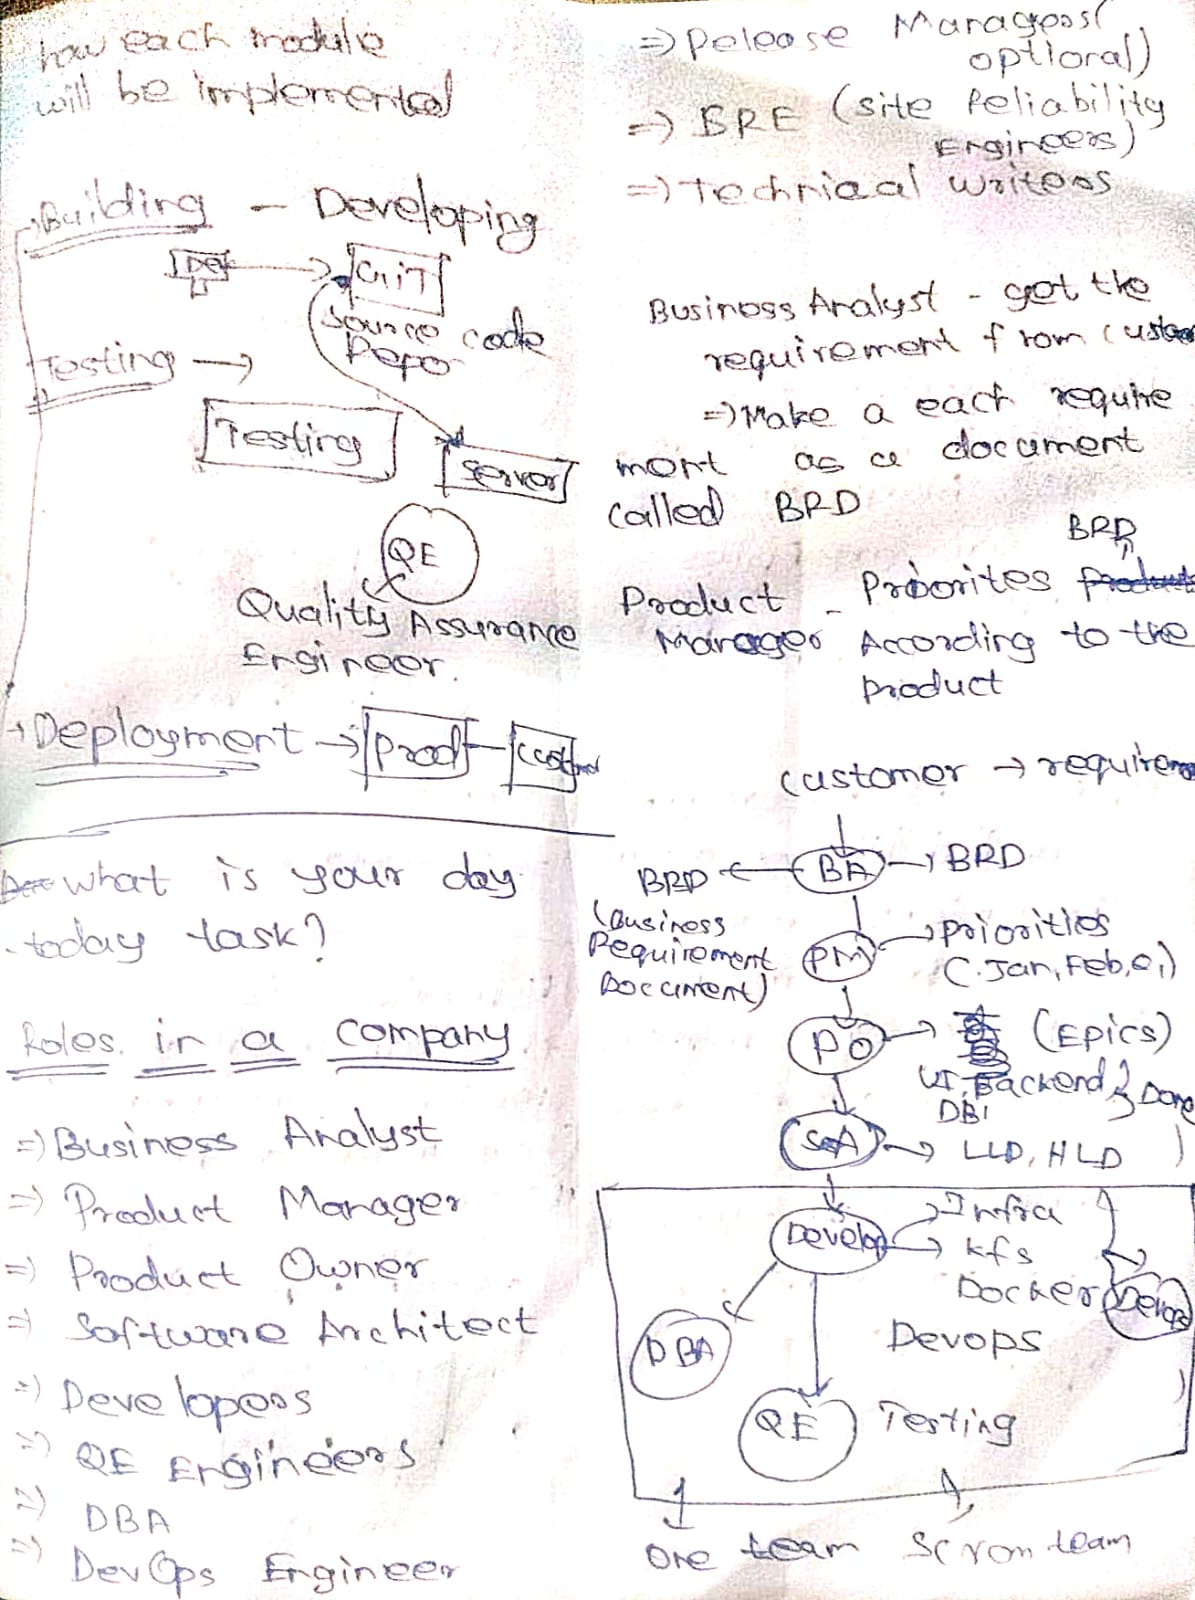 how each module
will be implemented
Building - Developing
Dev → GIT
Source code
Repo
Testing →
Testing
Server
QE
Quality Assurance
Engineer.
→ Deployment → Prod
what is your day
today task?
Roles in a company
=> Business Analyst
=> Product Manager
=> Product Owner
=> Software Architect
=> Developers
=> QE Engineers
=> DBA
=> DevOps Engineer
=> Release Managers(
optional)
=> BRE (site Reliability
Engineers)
=> Technical writers
Business Analyst - get the
requirement from
=> Make a each require
ment as a document
called BRD
BRD
Product - Priorites product
Manager According to the
product
customer → require
BRD ← BA → BRD
(Business
Requirement
Document)
PM → priorities
(Jan, Feb,
PO → (Epics)
UI, Backend } Done
DB,
SA → LLD, HLD )
Develop → Infra
→ kfs
Docker Devops
Devops
DBA
QE Testing
One team Scrom team